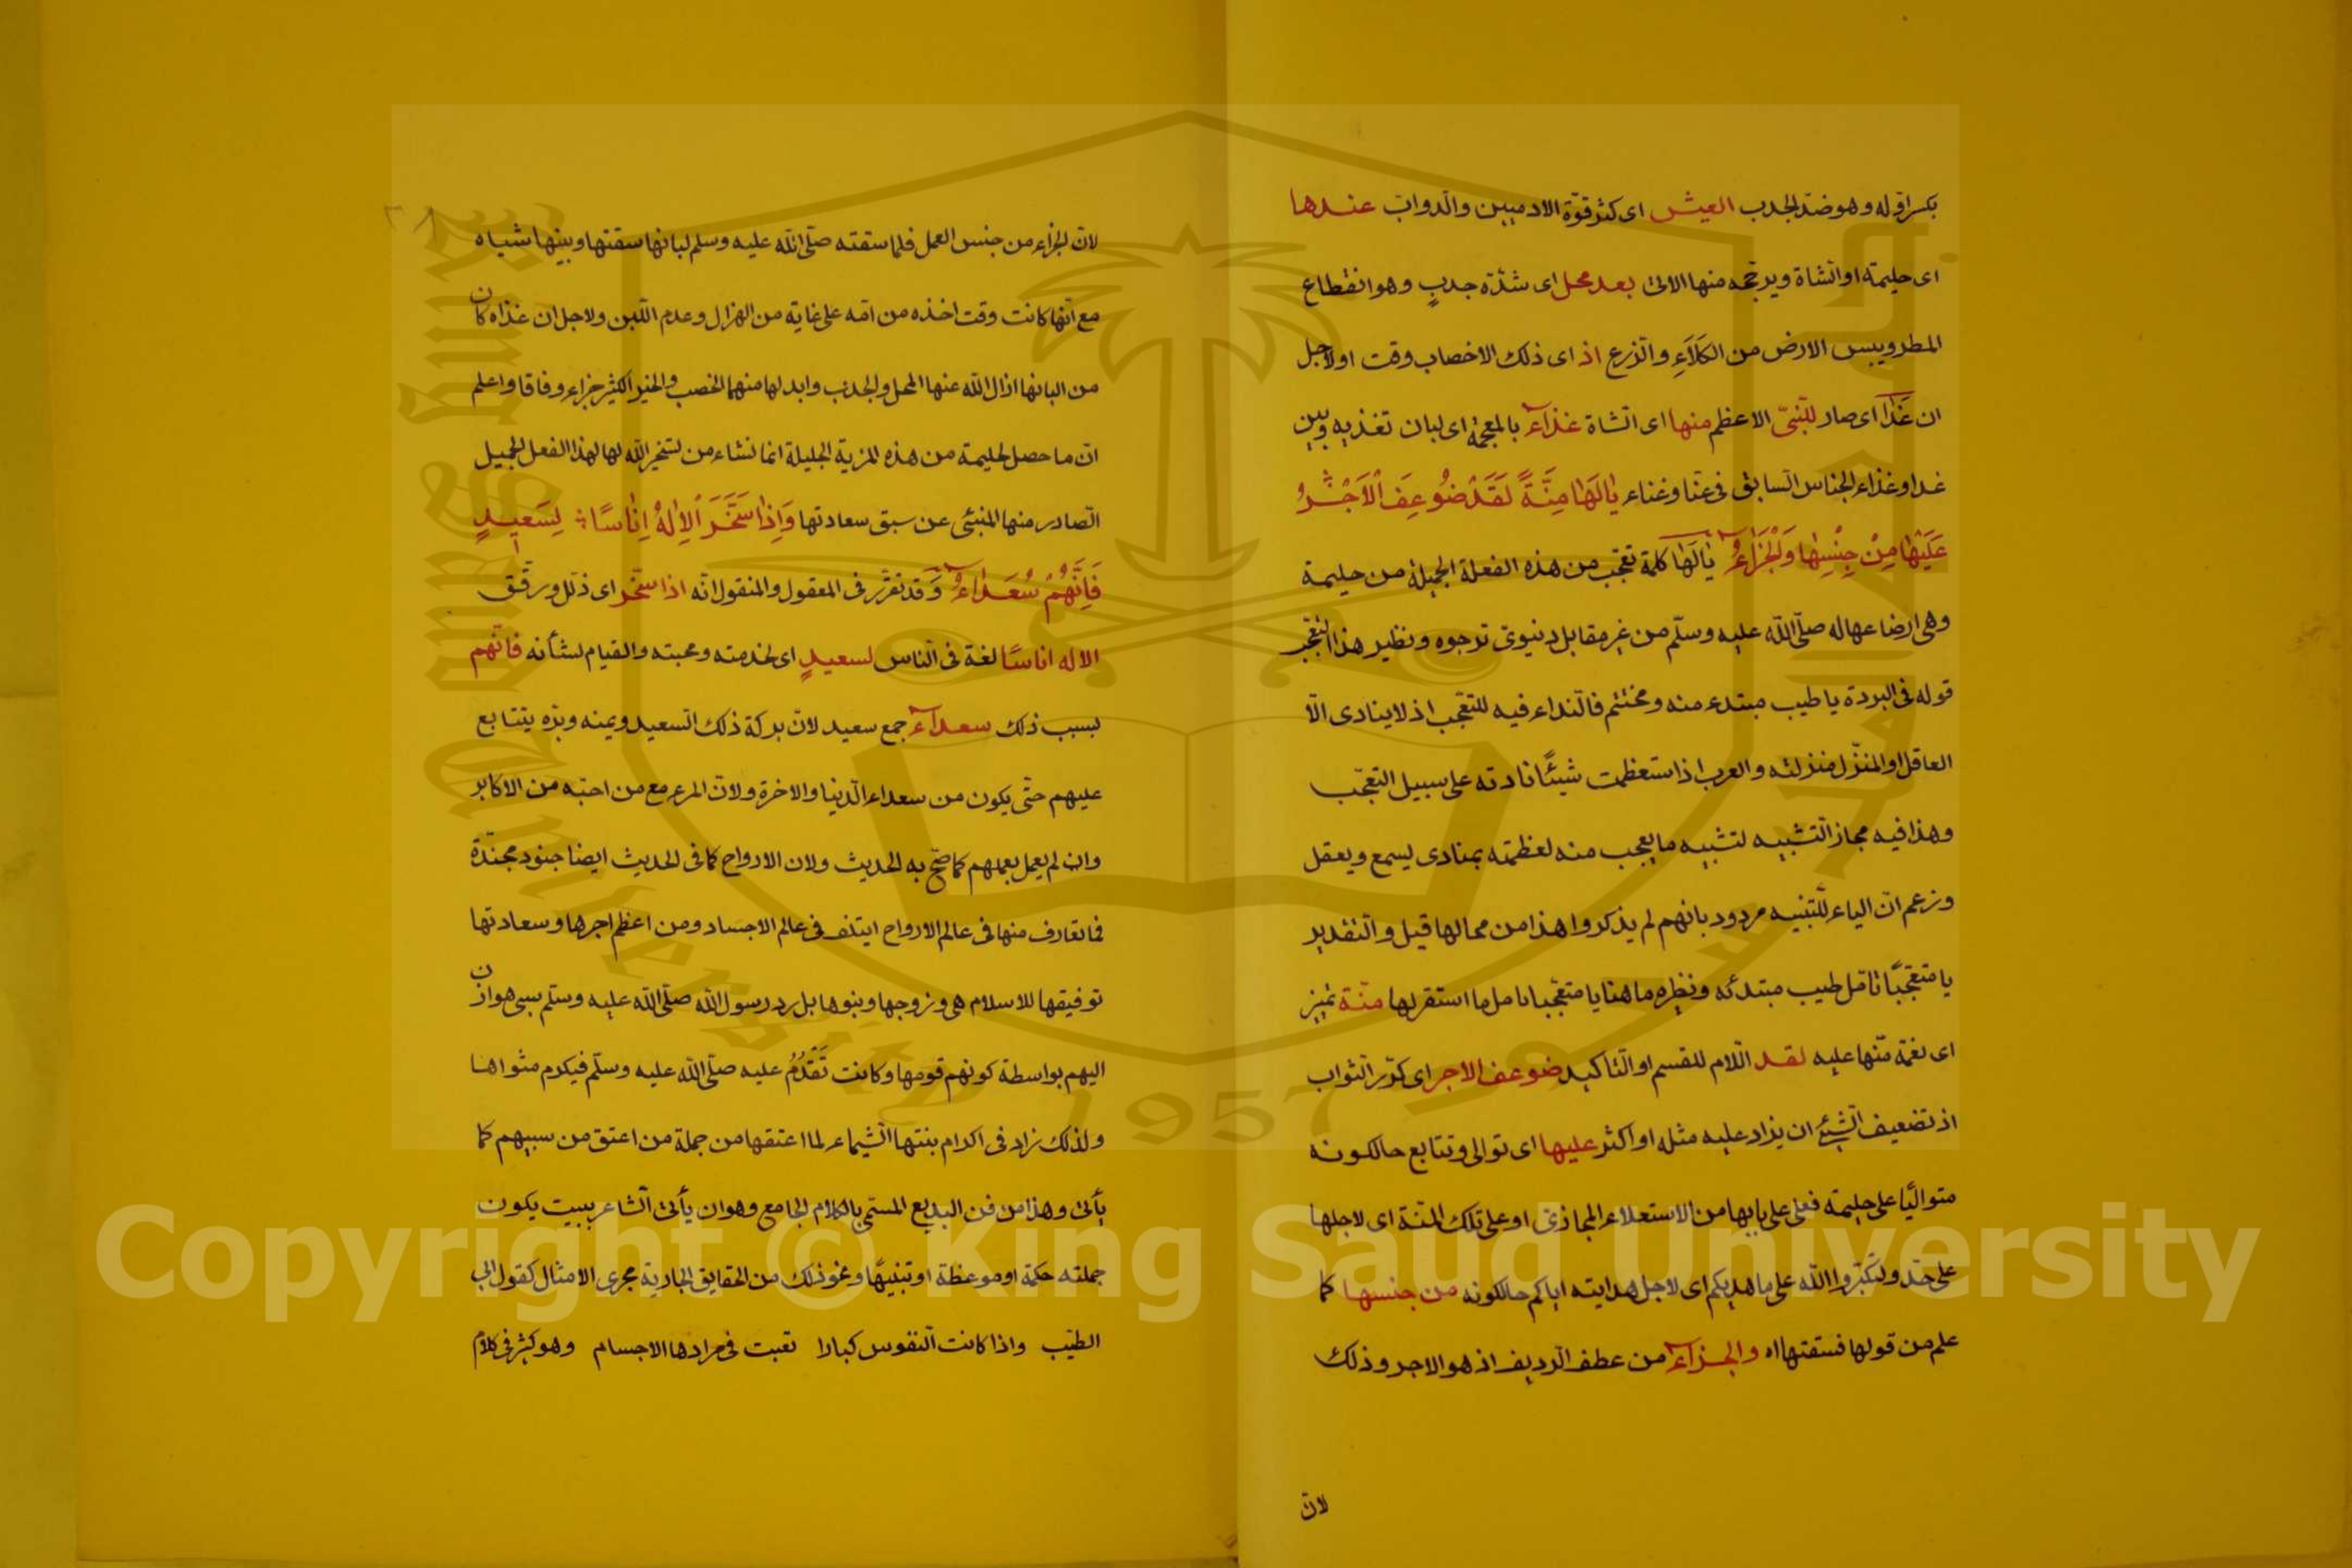 بكسر اوّله وهو ضدّ الجدب العيش اى كثر قوّة الادميين والدوابّ عندها
اى حليمة او الشاة ويرجّحه منها الاتى بعد محل اى شدّة جدبٍ وهو انقطاع
المطر ويبس الارض من الكَلَاءِ والزرع اذ اى ذلك الاخصاب وقت او لاجل
ان غَدَا اى صار للنّبىّ الاعظم منها اى الشاة غذاءٓ بالمعجمة اى لبان تغذيه وبين
غدا وغذاء الجناس السابق فى عنا وغناء يَالَهَا مِنَّةً لَقَدْ ضُوعِفَ الْاَجْرُ
عَلَيْهَا مِنْ جِنْسِهَا وَالْجَزَاءُ يَالَهَا كلمة تعجّب من هذه الفعلة الجميلة من حليمة
وهى ارضاعها له صلّى اللّه عليه وسلّم من غير مقابل دنيوىّ ترجوه ونظير هذا التعجّب
قوله فى البردة يا طيب مبتدء منه ومختتم فالنداء فيه للتعجّب اذ لا ينادى الّا
العاقل او المنزّل منزلته والعرب اذا ستعظمت شيئًا نادته على سبيل التعجّب
وهذا فيه مجاز التشبيه لتشبيه ما يعجب منه لعظمته بمنادى يسمع ويعقل
وزعم انّ الياء للتنبيه مردود بانهم لم يذكروا هذا من محالها قيل والتقدير
يا متعجّبًا تامّل طيب مبتدئه ونظيره ما هنا يا متعجّبا تامل ما استقر لها منّة تميز
اى نعمة منّها عليه لقد اللام للقسم او التاكيد ضوعف الاجر اى كرّر الثواب
اذ تضعيف الشيئ ان يزاد عليه مثله او اكثر عليها اى توالى وتتابع حالكونه
متواليًا على حليمة فعلى على بابها من الاستعلاء المجازىّ او على تلك المنّة اى لاجلها
على حدّ ولتكبّروا اللّه على ما هديكم اى لاجل هدايته اياكم حالكونه من جنسها كما
علم من قولها فسقتها اه والجزاءٓ من عطف الرديف اذ هو الاجر وذلك
لانّ
٢٨
لانّ الجزاء من جنس العمل فلما سقته صلّى اللّه عليه وسلم لبانها سقتها وبنيها شياه
مع انّها كانت وقت اخذه من امّه على غاية من الهزال وعدم اللبن ولاجل ان غذاه كان
من البانها ازال اللّه عنها المحل والجدب وابدلها منهما الخصب والخير الكثير جزاء وفاقا واعلم
انّ ما حصل لحليمة من هذه المزية الجليلة انما نشاء من تسخير اللّه لها لهذا الفعل الجميل
الصادر منها المنبئى عن سبق سعادتها وَاِذَا سَخَّرَ الْاِلٰهُ اِنَاسًا لِسَعِيدٍ
فَاِنَّهُمْ سُعَدَاءُ وقد تقرّر فى المعقول والمنقول انّه اذا سخّر اى ذلّل ورقّق
الاله اناسًا لغة فى الناس لسعيدٍ اى لخدمته ومحبته والقيام لشأنه فانّهم
بسبب ذلك سعداءٓ جمع سعيد لانّ بركة ذلك السعيد ويمنه وبرّه يتتابع
عليهم حتّى يكون من سعداء الدنيا والاخرة ولانّ المرء مع من احبّه من الاكابر
وان لم يعمل بعملهم كما صحّ به الحديث ولان الارواح كما فى الحديث ايضا جنود مجنّدة
فما تعارف منها فى عالم الارواح ايتلف فى عالم الاجساد ومن اعظم اجرها وسعادتها
توفيقها للاسلام هى وزوجها وبنوها بل رد رسول اللّه صلّى اللّه عليه وسلّم سبى هوازن
اليهم بواسطة كونهم قومها وكانت تَقْدُمُ عليه صلّى اللّه عليه وسلّم فيكرم مثواها
ولذلك زاد فى اكرام بنتها الشيماء لما اعتقها من جملة من اعتق من سبيهم كما
يأتى وهذا من فن البديع المسمّى بالكلام الجامع وهو ان يأتى الشاعر ببيت يكون
جملته حكمة او موعظة او تنبيهًا ونحو ذلك من الحقايق الجارية مجرى الامثال كقول ابى
الطيّب واذا كانت النفوس كبارا تعبت فى مرادها الاجسام وهو كثير فى كلام
King Saud University
1957
Copyright © King Saud University